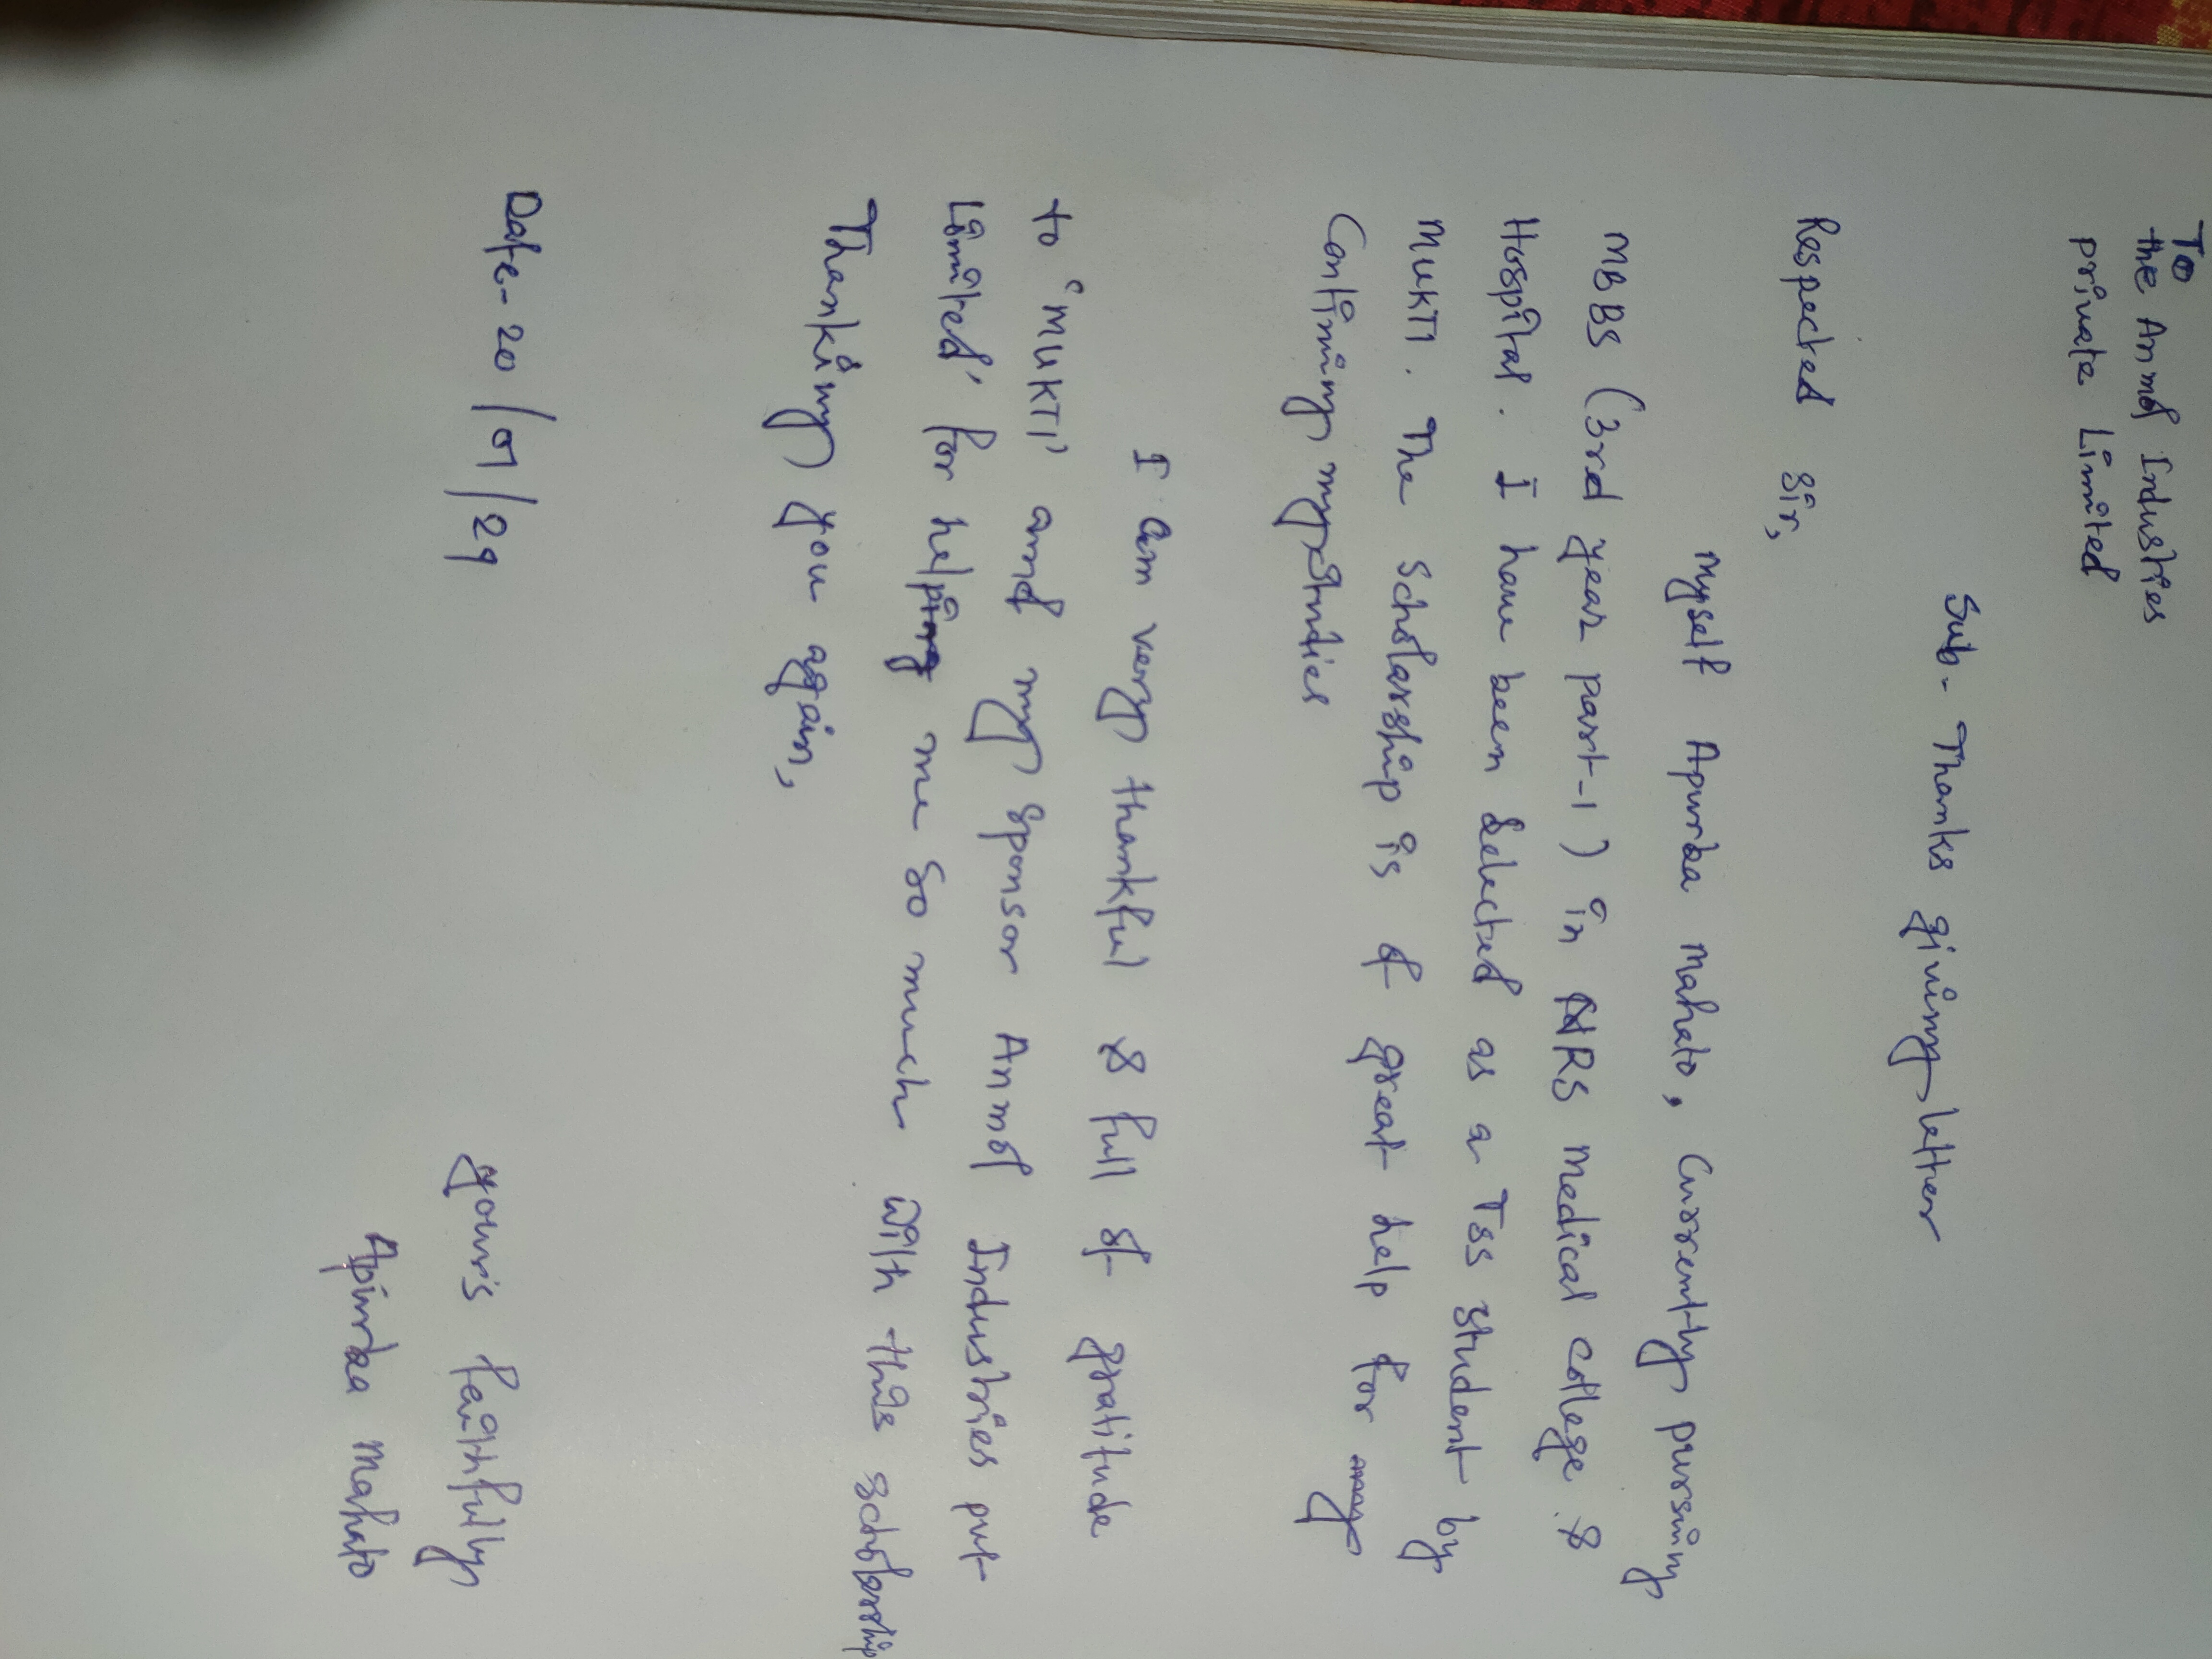 To
the Anmol Industries
private Limited
Sub- Thanks giving letter
Respected Sir,
myself Apurba Mahato, Currently pursuing
MBBS (3rd year part-1) in NRS Medical college &
Hospital. I have been Selected as a TSS student by
MUKTI. The Scholarship is of great help for
Continuing my studies
I am very thankful & full of gratitude
to 'MUKTI' and my sponsor Anmol Industries pvt
Limited' for helping me so much with this scholarship
Thanking you again,
Date-20/01/24
your's faithfully
Apurba Mahato